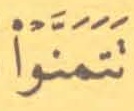 تَتَمَنَّوْا